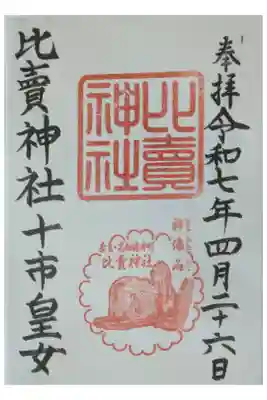 奉拝 令和七年四月二十六日
比賣神社
比賣神社 十市皇女
比賣神社